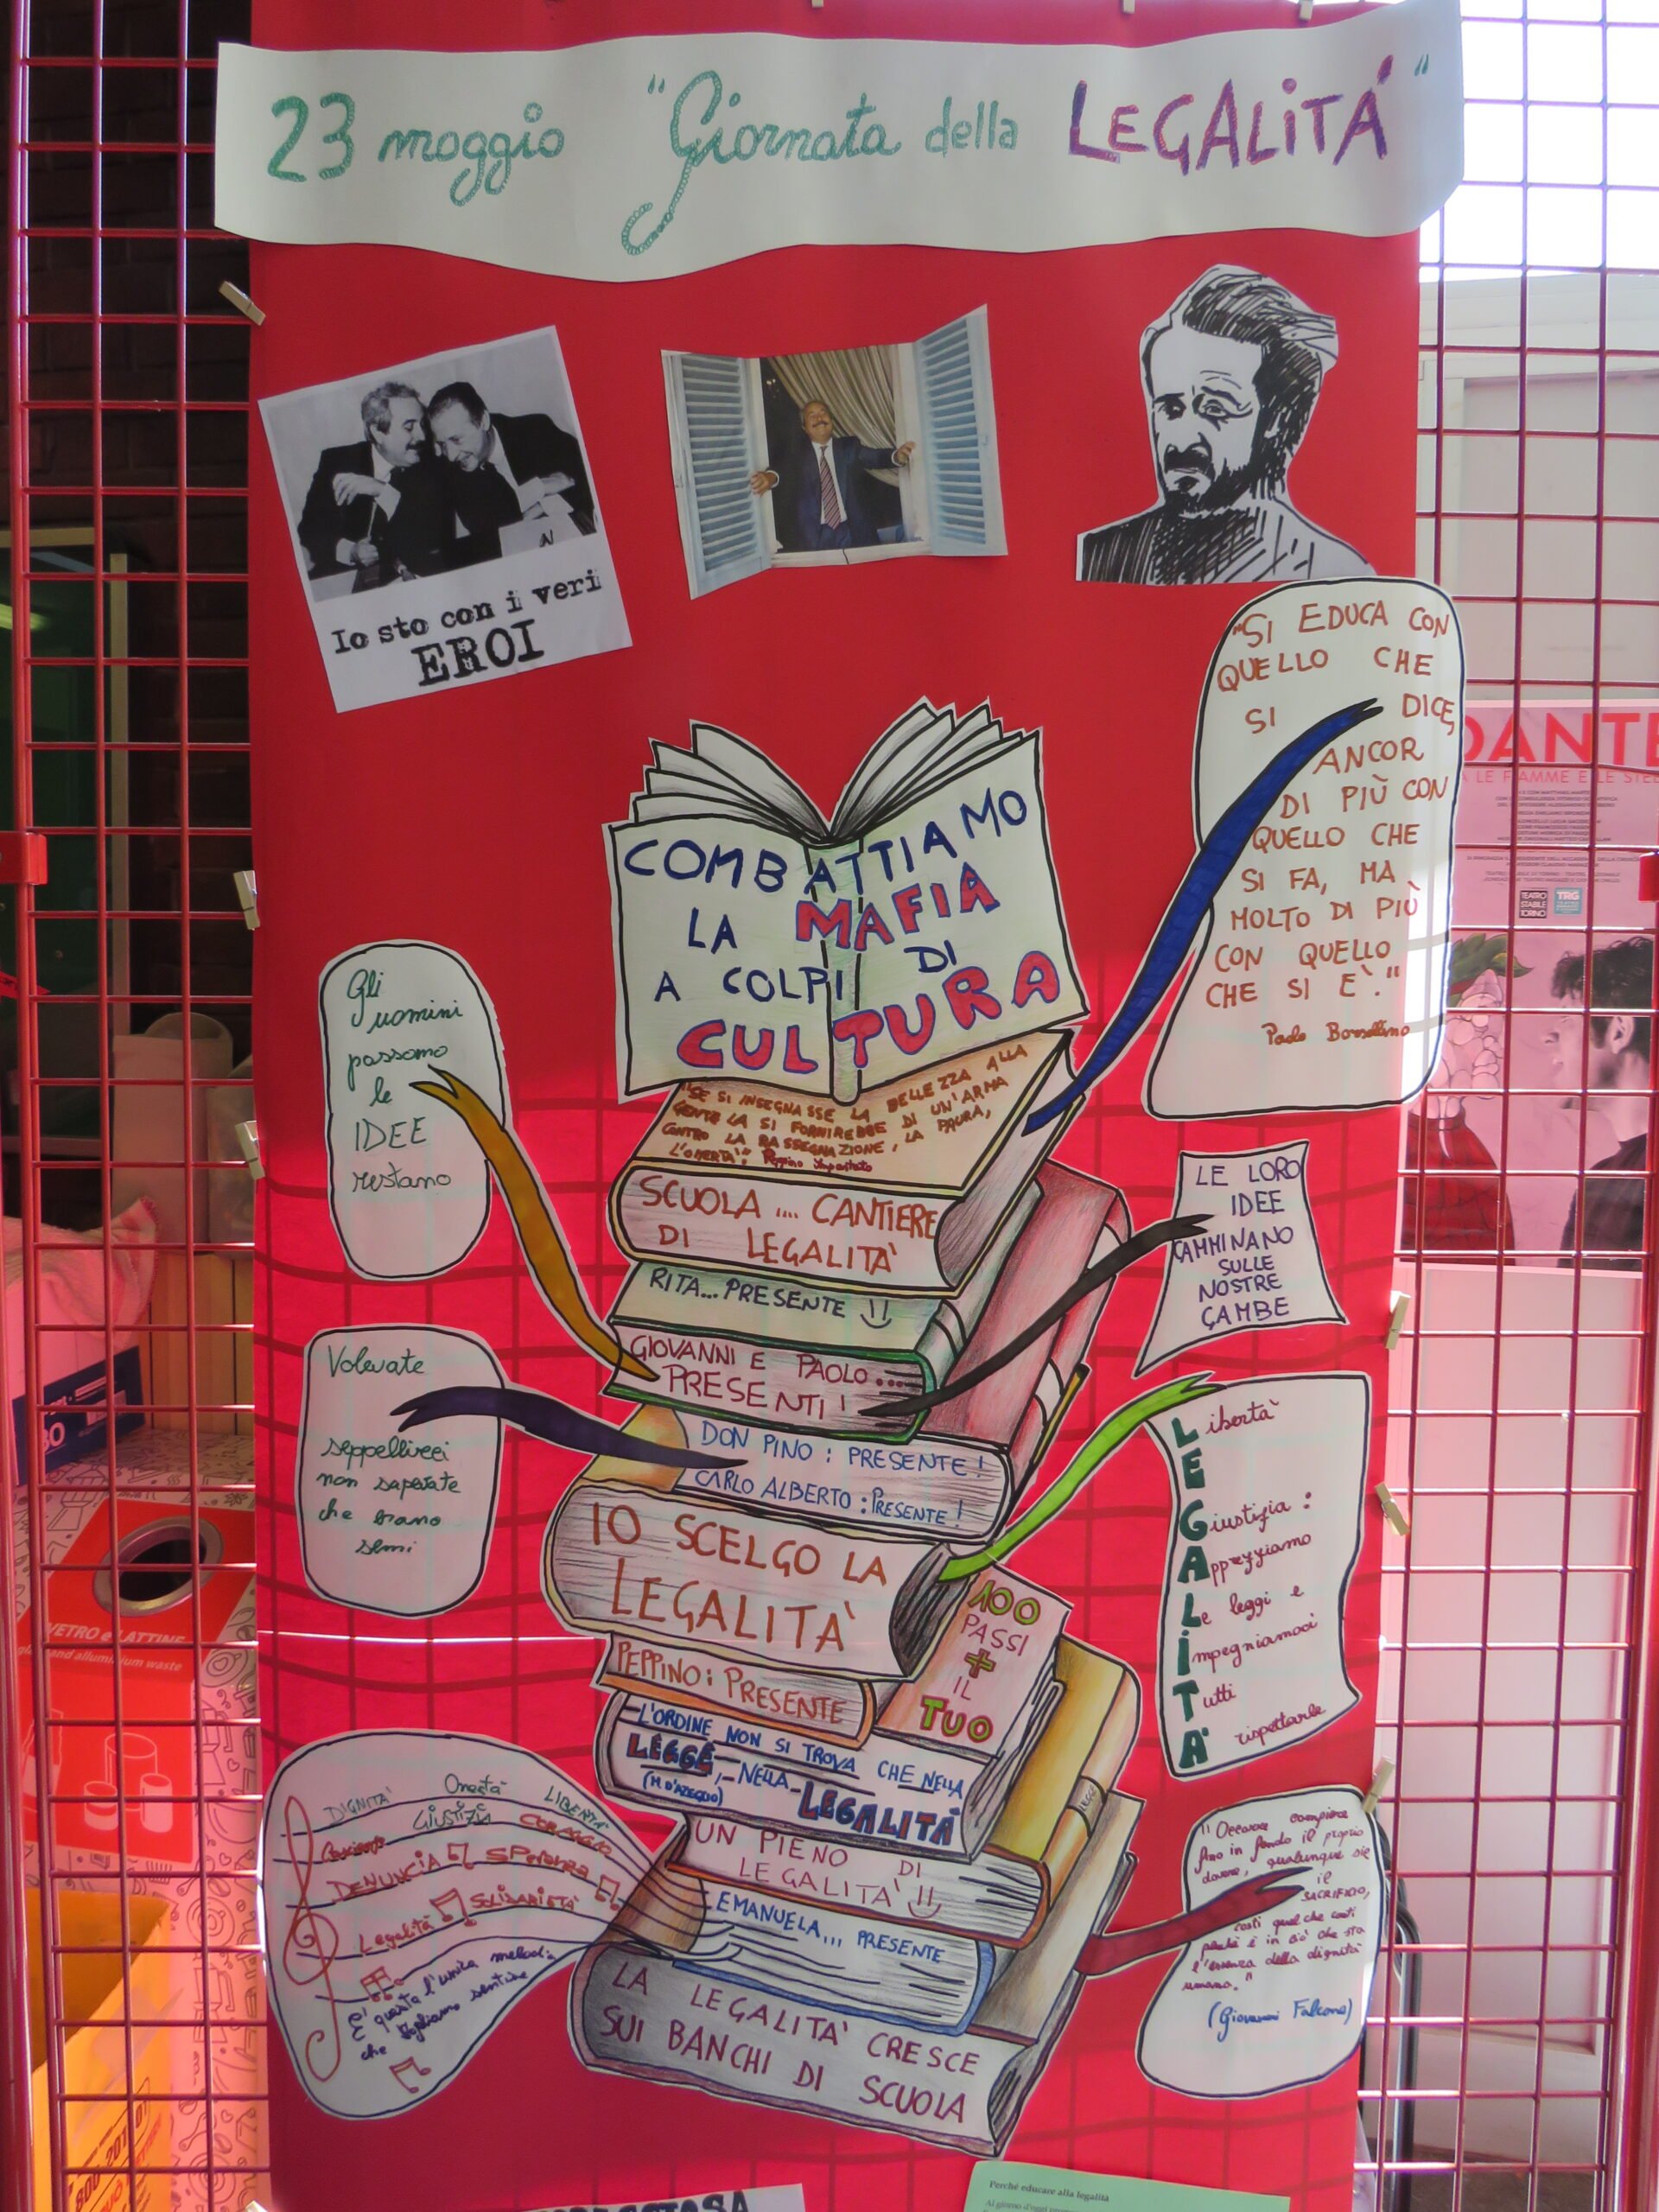 23 maggio "Giornata della LEGALITÁ"
Io sto con i veri
EROI
"SI EDUCA CON
QUELLO CHE
SI DICE,
ANCOR
DI PIÙ CON
QUELLO CHE
SI FA, MA
MOLTO DI PIÙ
CON QUELLO
CHE SI È."
Paolo Borsellino
COMBATTIAMO
LA MAFIA
A COLPI DI
CULTURA
"SE SI INSEGNASSE LA BELLEZZA ALLA
GENTE LA SI FORNIREBBE DI UN'ARMA
CONTRO LA RASSEGNAZIONE, LA PAURA,
L'OMERTÀ". Peppino Impastato
SCUOLA .... CANTIERE
DI LEGALITÀ
RITA... PRESENTE !!
GIOVANNI E PAOLO ...
PRESENTI !
DON PINO : PRESENTE !
CARLO ALBERTO : PRESENTE !
IO SCELGO LA
LEGALITÀ
100
PASSI
+
IL
TUO
PEPPINO: PRESENTE
L'ORDINE NON SI TROVA CHE NELLA
LEGGE, NELLA LEGALITÀ
(M D'AZEGLIO)
UN PIENO DI
LEGALITÀ !!
LEGGE
EMANUELA... PRESENTE
LA LEGALITÀ CRESCE
SUI BANCHI DI SCUOLA
Gli
uomini
passano
le
IDEE
restano
Volevate
seppellirci
non sapevate
che erano
semi
DIGNITÀ Onestà LIBERTÀ
GIUSTIZIA CORAGGIO
DENUNCIA SPERANZA
Legalità SOLIDARIETÀ
È questa l'unica melodia
che vogliamo sentire
LE LORO
IDEE
CAMMINANO
SULLE
NOSTRE
GAMBE
Libertà
E
Giustizia :
Appreggiamo
Le leggi e
impegniamoci
Tutti
À rispettarle
"Occorre compiere
fino in fondo il proprio
dovere, qualunque sia
il
SACRIFICIO,
costi quel che costi
perché è in ciò che sta
l'essenza della dignità
umana."
(Giovanni Falcone)
Perché educare alla legalità
DANTE
LE FIAMME E LE STEL
TEATRO
STABILE
TORINO
TRG
VETRO e LATTINE